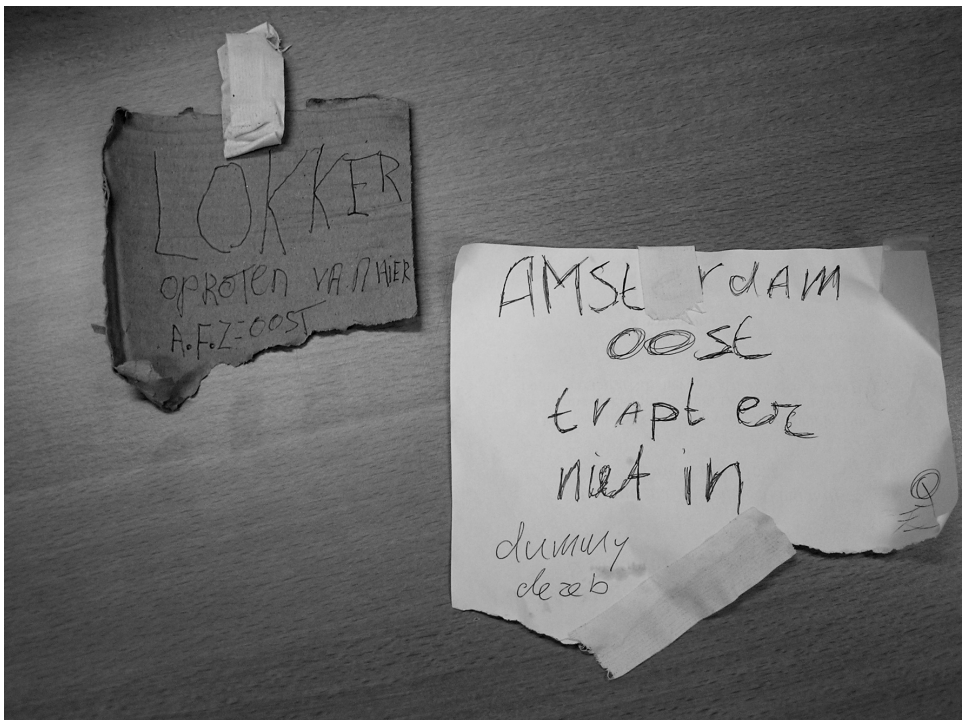 LOKKER
OPROTEN VAN HIER
A.F.Z-OOST
AMSterdAM
oost
trapt er
niet in
dummy
dezeb
Q